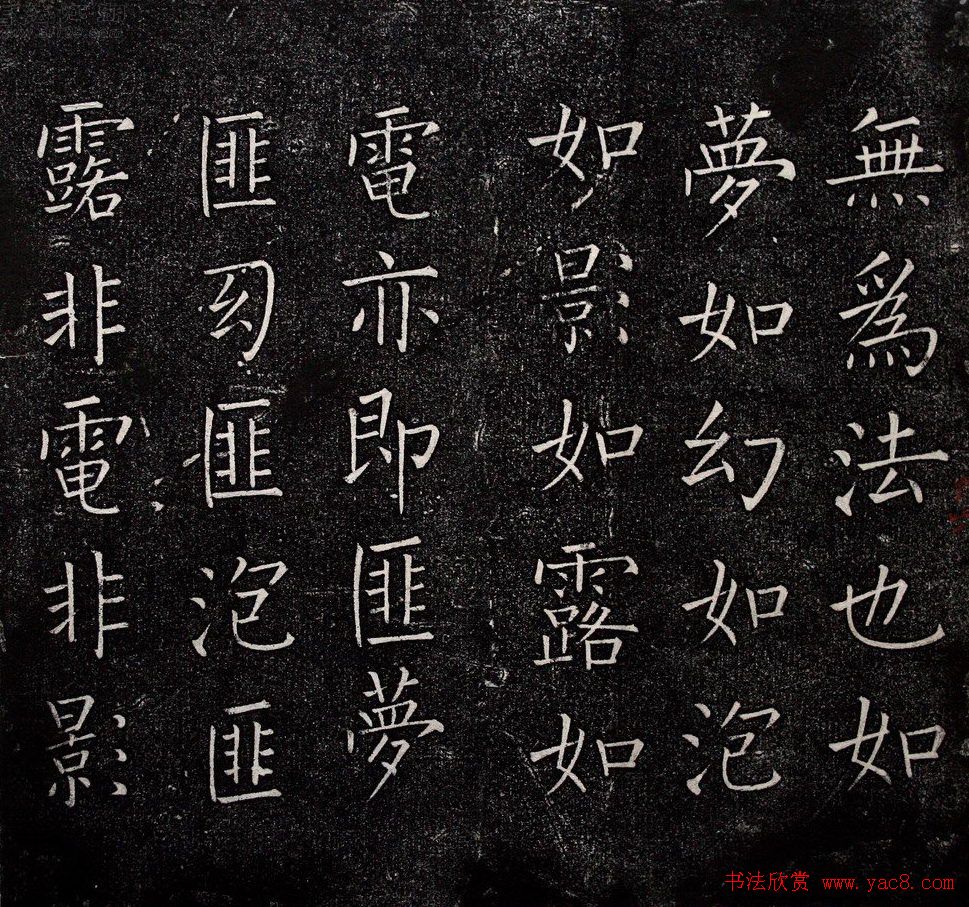 無爲法也如
夢如幻如泡
如影如露如
電亦即匪夢
匪幻匪泡匪
露非電非影
书法欣赏 www.yac8.com